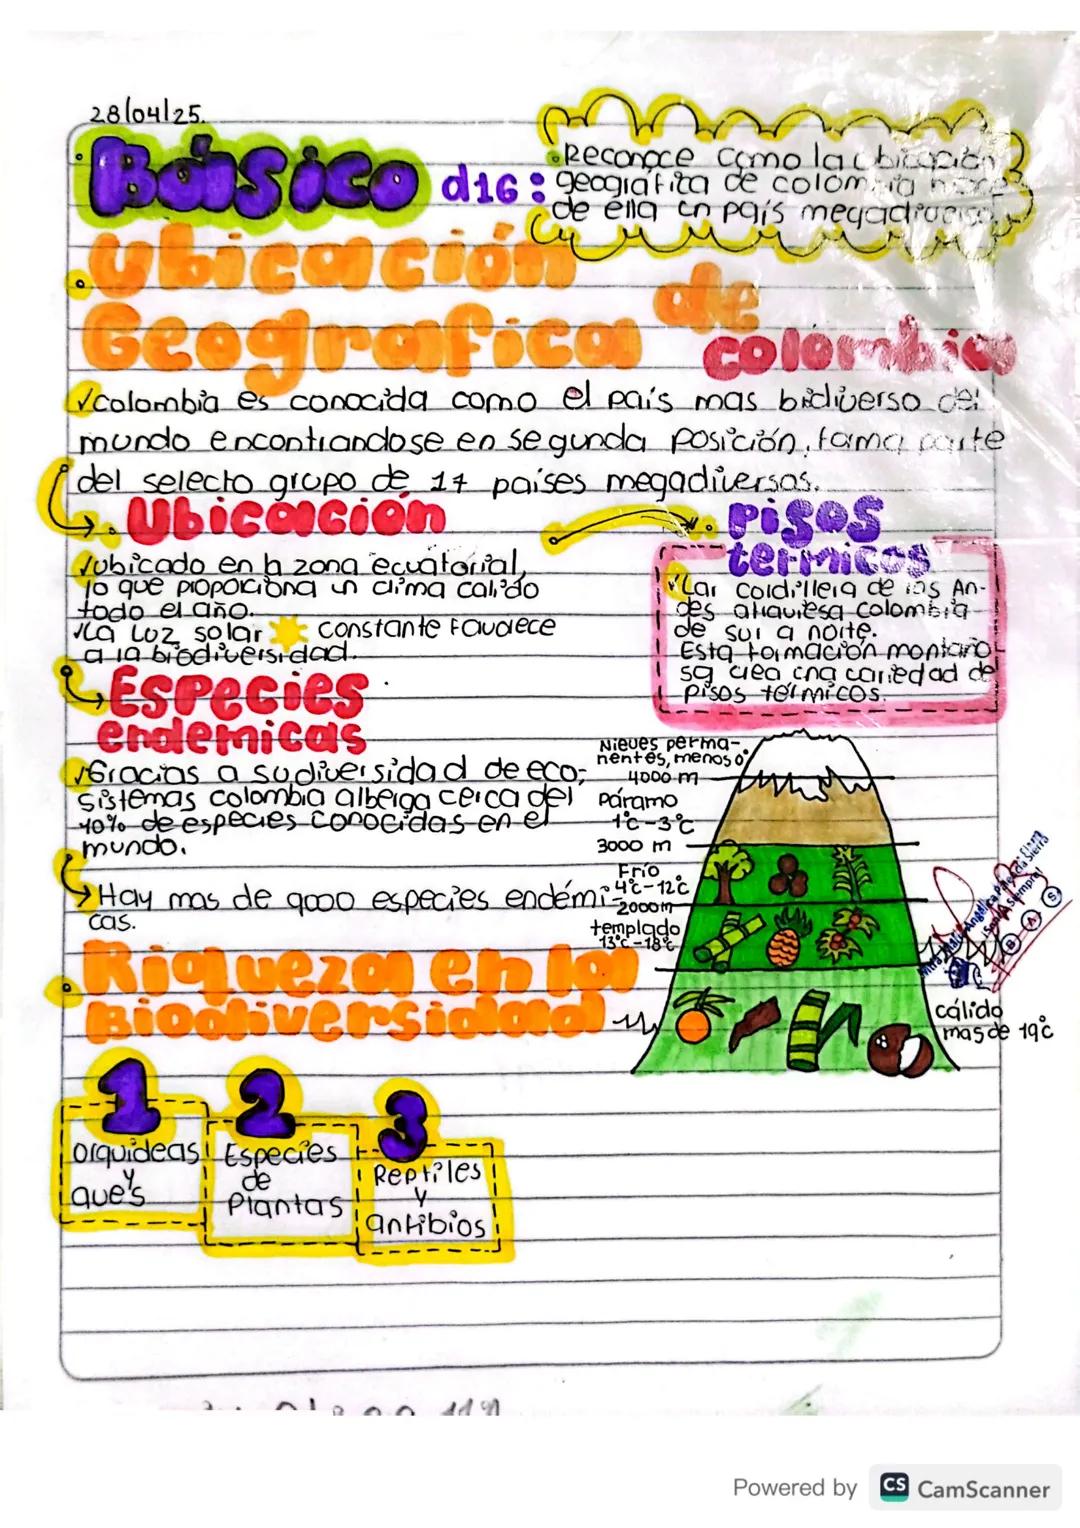 28/04/25.
Básico d16:
Reconoce como la ubicación
geográfica de colombia hace
de ella un país megadiverso.
Ubicación
Geografica de
colombia
✓colombia es conocida como el país mas bidiverso del
mundo encontrandose en segunda posición, forma parte
del selecto grupo de 17 países megadiversos.
Ubicación
✓ubicado en la zona ecuatorial,
lo que proporciona un clima calido
todo el año.
✓La Luz solar constante favorece
a la biodiversidad.
pisos
termicos
✓Lar cordillera de los An-
des atraviesa colombia
de sur a norte.
Esta formación montaño
sa crea una variedad de
pisos térmicos.
Especies
endemicas
✓Gracias a su diversidad de eco-
sistemas colombia alberga cerca del
10% de especies conocidas en el
mundo.
Hay mas de 9000 especies endémi-
cas.
Nieves perma-
nentes, menos 0°
4000 m
Páramo
1°c-3°c
3000 m
Frío
4°c-12°c
2000m
templado
13°c-18°c
cálido
mas de 19°c
Riqueza en la
Biodiversidad
1
orquídeas
y
aves
2
Especies
de
Plantas
3
Reptiles
y
anfibios
¡Sonría Siempre!
B A S
Powered by CS CamScanner